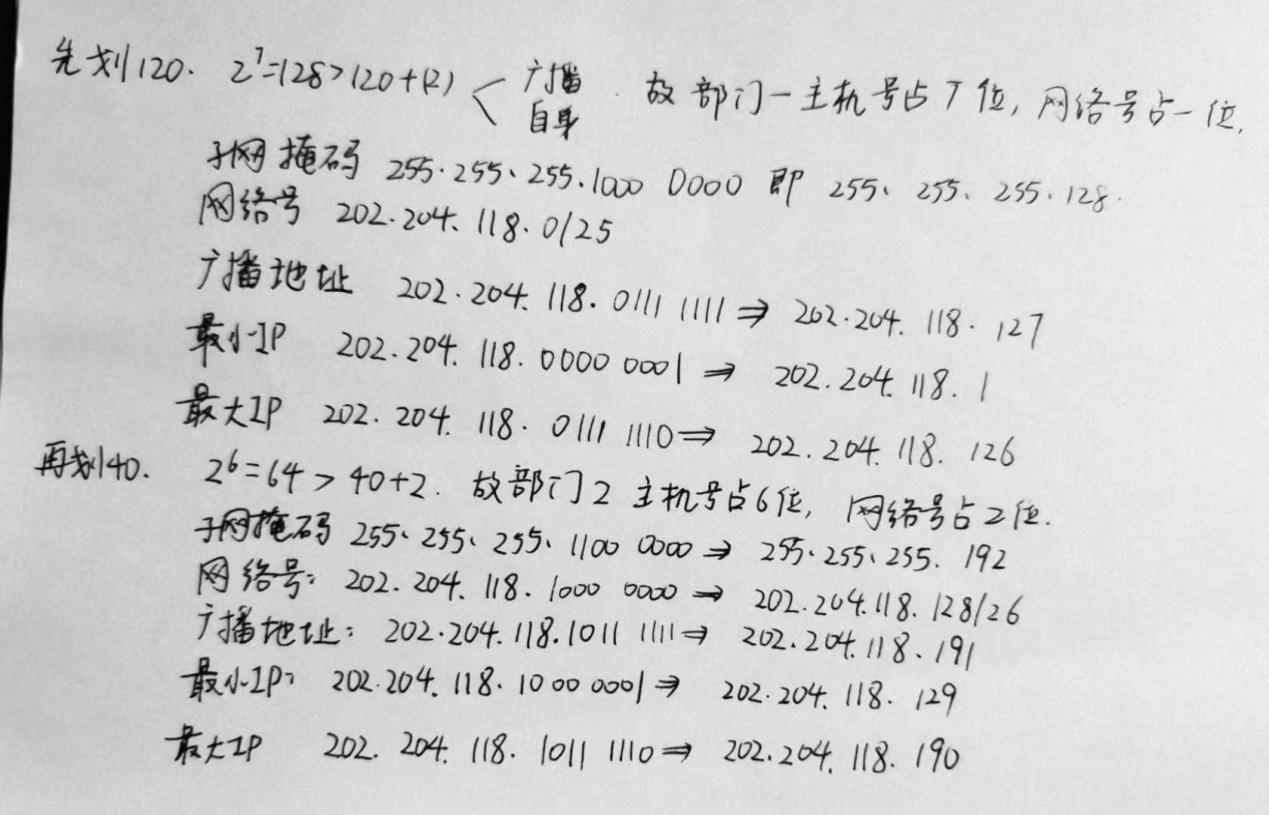 先划120. 2⁷=128>120+(2) < 广播 自身 . 故部门一主机号占7位, 网络号占一位.
子网掩码 255.255、255.1000 0000 即 255、255、255.128.
网络号 202.204.118.0/25
广播地址 202.204.118.0111 1111 ⇒ 202.204.118.127
最小IP 202.204.118.0000 0001 ⇒ 202.204.118.1
最大IP 202.204.118.0111 1110 ⇒ 202.204.118.126
再划40. 2⁶=64>40+2. 故部门2 主机号占6位, 网络号占2位.
子网掩码 255、255、255、1100 0000 ⇒ 255、255、255.192
网络号: 202.204.118.1000 0000 ⇒ 202.204.118.128/26
广播地址: 202.204.118.1011 1111 ⇒ 202.204.118.191
最小IP: 202.204.118.1000 0001 ⇒ 202.204.118.129
最大IP 202.204.118.1011 1110 ⇒ 202.204.118.190